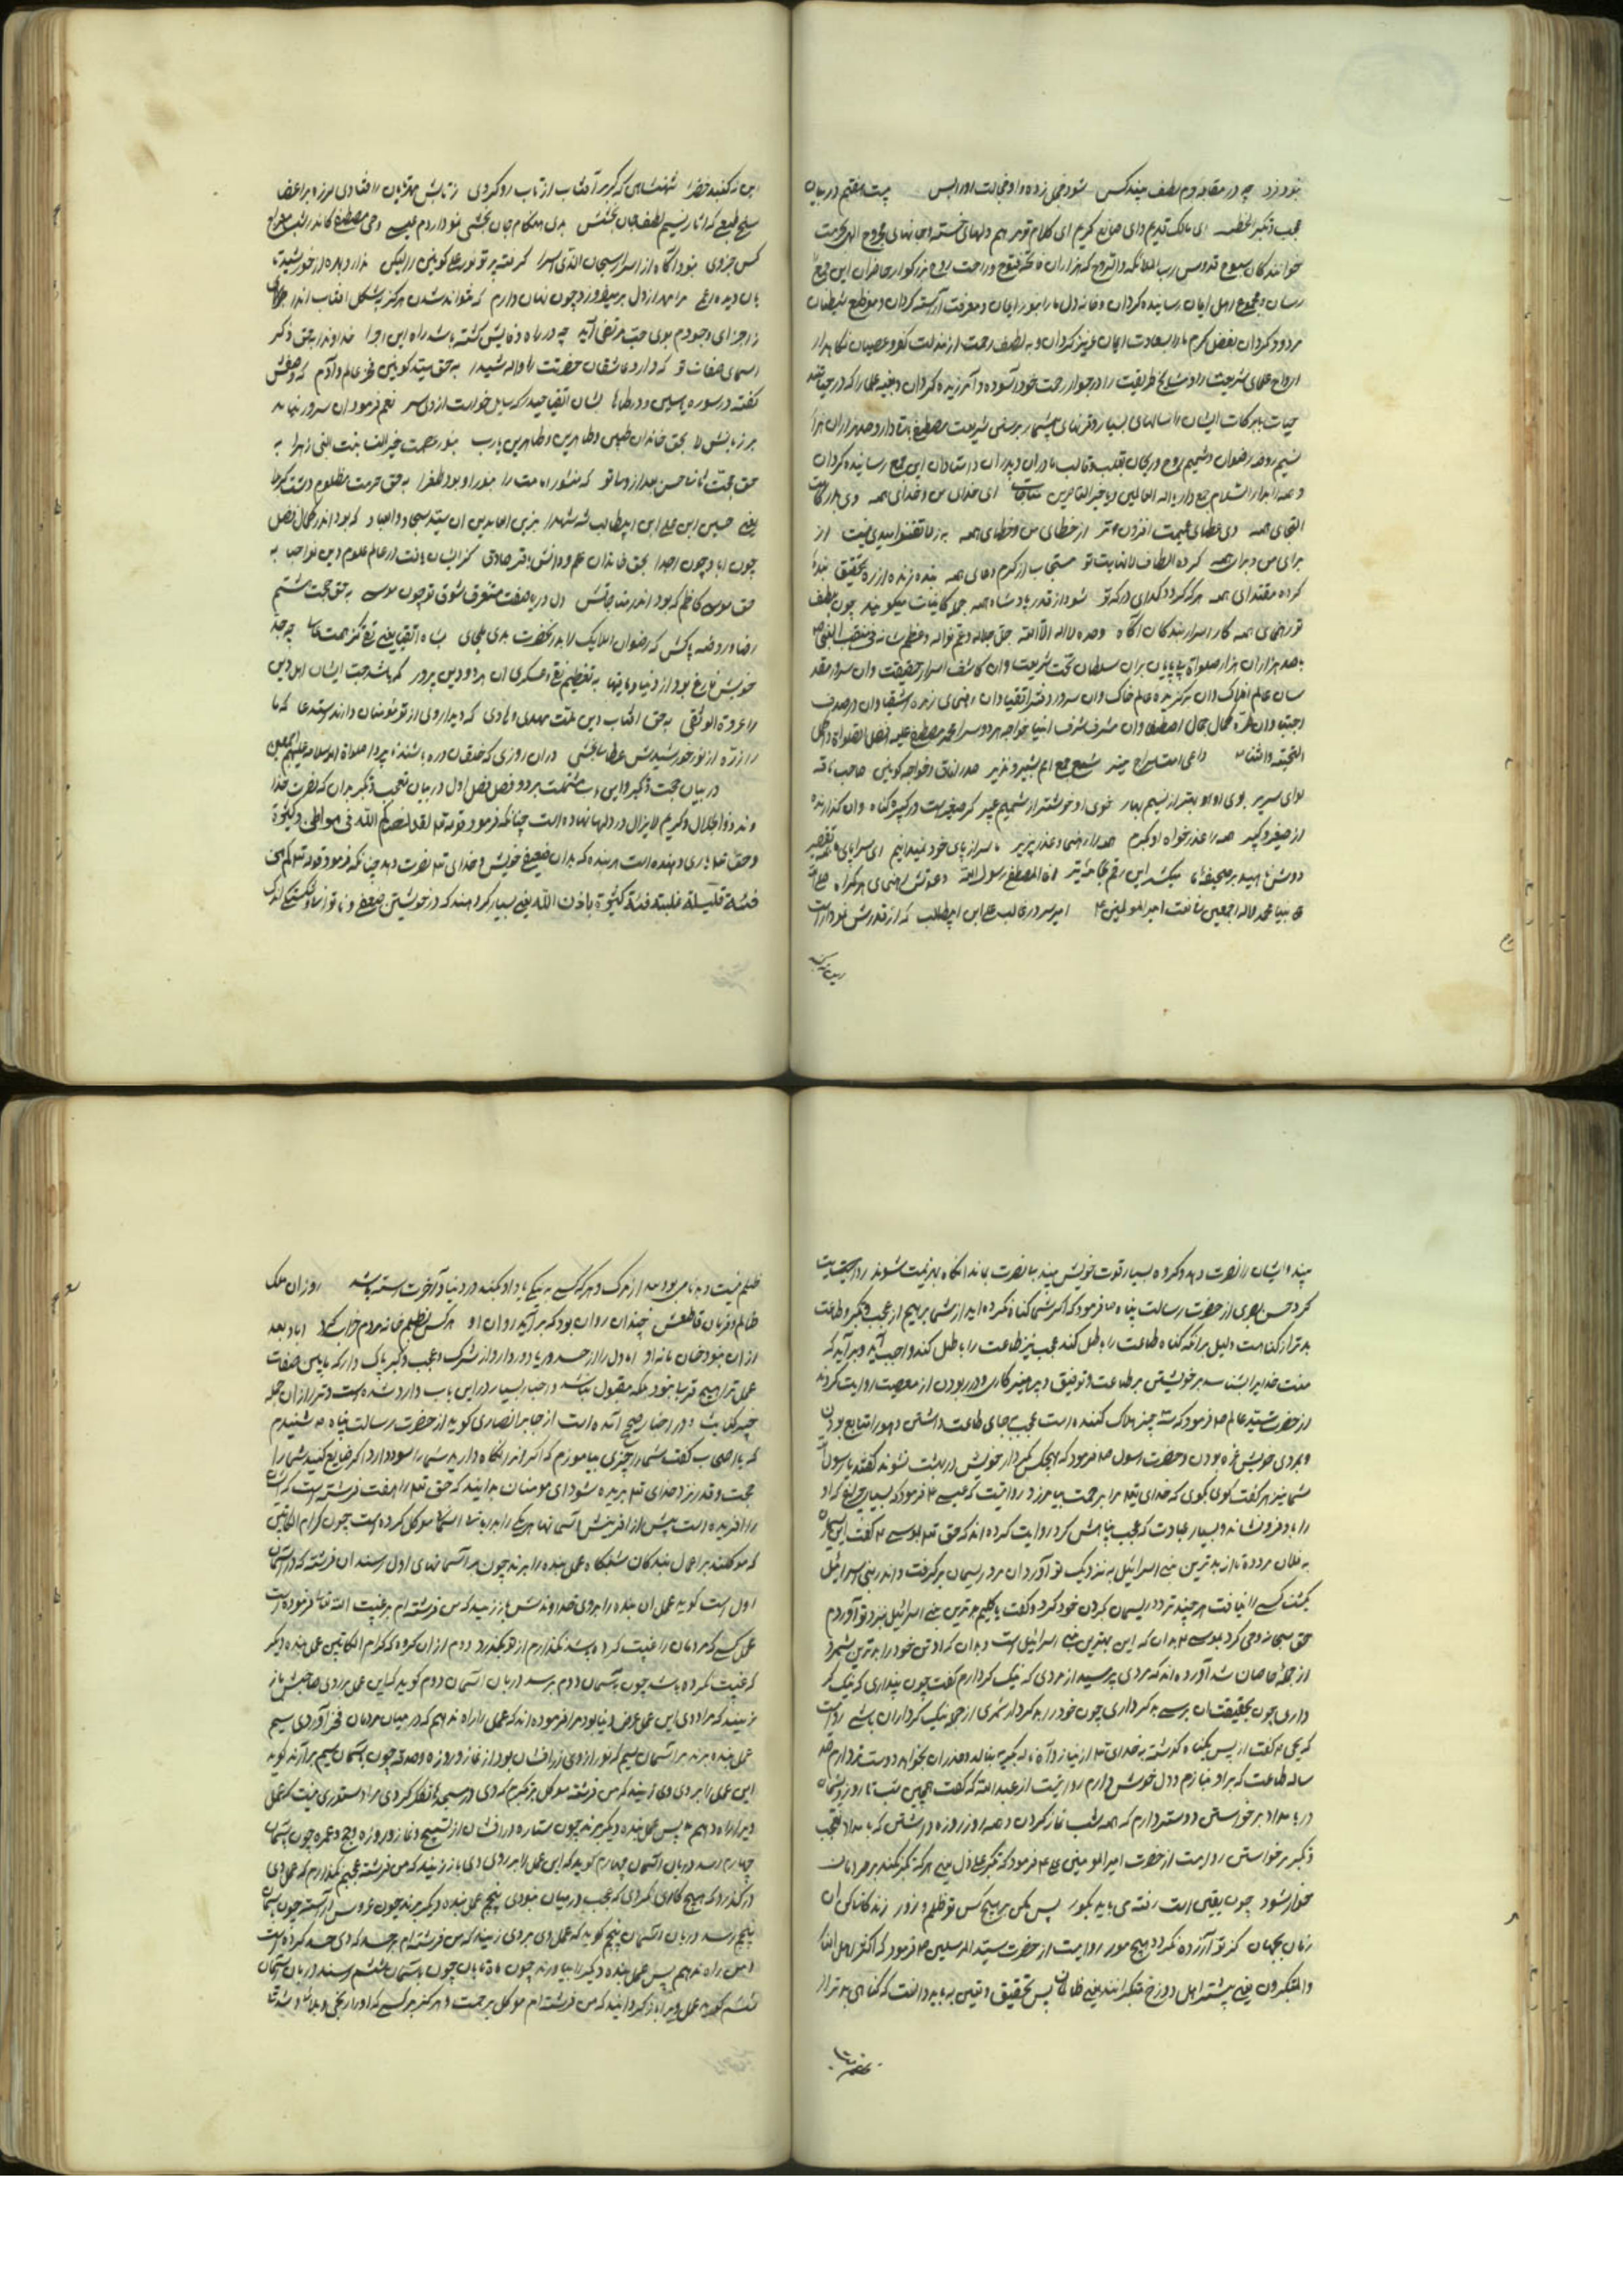 بنورزد چه در مقابه دم لطف میند کس شود خجل زده و از خجالت اورا بس میت هفتم در بیان
عجب و تکبر الخطبه ای مالک قدیم و ای صانع کریم ای کلام تو مرهم دلهای خسته و جانهای مجروح الهی بحرمت
خوانندگان سبوح قدوس رب الملائکة والروح که هزاران فتوح و راحت روح بزرگوار حاضران این جمع
رسان و مجموع اهل ایمان رسانیده گردان و خانه دل ما را بنور ایمان و معرفت آراسته گردان و موضع شیطان
مردود گردان بفضل و کرم ما را بسعادت ایمان عزیز گردان و به لطف و رحمت از مذلت کفر و عصیان نگاه دار
ارواح علمای شریعت را و مشایخ طریقت را در جوار رحمت خود آسوده و آمرزیده گردان و بقیه علما را که در حیاتند
حیات با برکات ایشان را سالهای بسیار و قرنهای بیشمار بر سر شریعت مصطفی پاینده دار و صد هزاران هزار
نسیم روضه رضوان و شمیم روح و ریحان بقلب و قالب مادران و پدران و استادان این جمع رسانیده گردان
و همه را بدار السلام جمع دار یا اله العالمین و یا خیر الناصرین مناجات ای خدای من و خدای همه وی بدرگاهت
التجای همه وی عطای عمیمت افزون تر از خطای من و خطای همه به ز لا تقنطوا امیدی نیست از
برای من و برای همه کرده الطاف لانهایت تو مستجاب از کرم دعای همه بنده زنده از ره تحقیق بنده
کرده مقتدای همه هر که گردد گدای درگه تو شود از قدر پادشاه همه جمله کائنات میگویند چون بلطف
تو رهنمای همه کار اسرار بندگان آگاه وحده لا اله الا الله جل جلاله و عم نواله و عظم شانه فی منقبت النبی
صد هزاران هزار صلواة بی پایان بر ان سلطان تخت شریعت و ان کاشف اسرار حقیقت و ان سرور مقد
سان عالم افلاک و ان برگزیده عالم خاک و ان سرور دفتر اتقیا و ان رهنمای زمره اشقیا و ان در صدف
اجتبا و ان طره کمال جمال اصطفا و ان مشرف شرف انبیا خواجه هر دو سرا محمد مصطفی علیه افضل الصلواة و اکمل
التحیة والثنا داعی امت سراج منیر شفیع جمع امم بشیر و نذیر صدر افاق و خواجه کونین صاحب ناقه
لوای سریر بوی او بو بهتر از نسیم بهار خوی او خوشتر از شمیم عبیر کر صغیرست در کبیره گناه و ان گذارنده
از صغیر و کبیر همه را عذر خواه او بکرم همه را رهنما و عذر پذیر ما سر از پای خود نمیدانیم ای سراپای همه تقصیر
دوش ناهید بر صحیفه ماه میکشید این رقم بخامه تیر هذا المصطفی رسول الله دعوتش رهنمای هر گمراه صلی الله
علی نبینا محمد و اله اجمعین منقبت امیر المومنین امیر سرور غالب علی ابن ابیطالب که از قدرش نمودارست
این نه گنبد خضرا شهنشاهی که گر بر آفتاب از تاب رو کردی ز تابش همچو تابان را فتادی لرزه بر اعضا
مسیح طبعی که از تار نسیم لطف جان بخشش بدی هنگام جان بخشی نمودار دم عیسی وصی مصطفی کاندر شب معراج
کس جزوی نبود آگاه از اسرار سبحان الذی اسرا گرفته پرتو نور علی کونین را لیکن ندارد بهره از خورشید
تابان دیده اعمی مرا مهر از دل بر میفروزد چون نهان دارم که نتواند شدن هرگز بشکل افتاب اندر
ز اجزای وجودم بوی حب مرتضی آید چه در راه وفایش گشته باشد راه این اجزا خداوندا بحق ذکر
اسمای صفات تو که دارد عاشقان حضرتت را واله و شیدا به حق سید کونین فخر عالم و آدم که وصفش
گفته در سوره یاسین و در طاها بشان اتقیا حیدر که سایل خواست از وی سر نعم فرمود ان سرور نیامد
بر زبانش لا بحق خاندان طیبین و طاهرین و طاهرین یارب بنور عصمت خیر النسا بنت النبی زهرا به
حق مجت شانا حسن بعد از وصا تو که منشور امامت را بنور او بود طغرا به حق حرمت مظلوم دشت کربلا
یعنی حسین ابن علی ابن ابیطالب شه شهدا بزین العابدین ان سید سجاد و العباد که بود اندر کمال فضل
چون ابا و چون اجدا بحق خاندان علم و دانش باقر و صادق کز ایشان یافت در عالم علوم دین نوا حبا به
حق موسی کاظم که بود اندر مناجاتش دل دریا صفت مستغرق شوق تو چون موسی به حق حجت هشتم
رضا و روضه پاکش که رضوان املایک لا بدر کهفت بدی ملجای به شاه اتقیا یعنی تقی کز همت عالی چو جد
خویش فارغ بود از دنیا و ما فیها به تعظیم نقی و عسکری ان هر دو دین پرور کمر باشد حب ایشان اهل دین
را عروة الوثقی به حق افتاب دین ملت مهدی و هادی که دیدار وی از تو مومنان دارند استدعا که ما
را ذره از نور خورشیدش عطا بخشی دران روزی که خلقان ذره باشند و خورشید پیدا صلواة الله و سلامه علیهم اجمعین
در بیان عجب و تکبر و این باب مشتملست بر دو فصل فصل اول در بیان عجب و تکبر بدان که نصرت خدا
وند ذو الجلال و کریم لایزال در دلها نهاده است چنانکه فرمود قوله تعالی لقد نصرکم الله فی مواطن کثیرة
و حق تعالی یاری دهنده است هر بنده که بداند ضعیفی خویش و خدای تعالی نصرت دهد چنانکه فرمود قوله تعالی کم من
فئة قلیلة غلبت فئة کثیرة باذن الله یعنی بسیار گروهند که در خویشتن ضعیفی و ناتوانی و شکستگی اندک
بیند و ایشان را نصرت دهد و گروه بسیار قوت خویش بیند بنا نصرت بماند انگاه هزیمت شوند روایت است
کرد حسن بصری از حضرت رسالت پناه ص فرمود که اگر شما گناه نکرده اید از شما بر بیم از عجب و تکبر و طاعت
بدتر از گناهست دلیل بر آنکه گناه طاعت را باطل کند عجب نیز طاعت را باطل کند واجب آید و بر آید که
منت خدایرا بشناسد بر خویشتن بر طاعت و توفیق و پرهیز کاری و دور بودن از معصیت روایت کردند
از حضرت سید عالم ص فرمود که سه چیز هلاک کننده است عجب بجای طاعت داشتن و هوا را تابع بودن
و بمردی خویش غره بودن و حضرت رسول ص فرمود که هیچکس بکردار خویش در بهشت نشوند گفتند یا رسول الله
شما نیز هم گفت گوی بگوی که خدای تعالی مرا برحمت بیامرزد روایت که عیسی ع فرمود که بسیار چراغ که او
را باد فرو نشاند و بسیار عبادت که عجب تباهش کرد روایت کرده اند که حق تعالی بموسی ع گفت این بیمار
به فلان مرو و تا از بدترین بنی اسرائیل به نزدیک تو آورد ان مرد ریسمان برگرفت و اندر بنی اسرائیل
بگشت کسی را نیافت هر چند تردد ریسمان بگردن خود کرد و گفت یا کلیم بدترین بنی اسرائیل نزد تو آوردم
حق سبحانه وحی کرد بموسی ع بدان که این بهترین بنی اسرائیل است بدان که او تن خود را بدترین شمرد
از جمله خاصان شد آورده اند که مردی پرسید از مردی که نیک کردارم گفت چون پنداری که نیک کر
داری چون بحقیقت ان برسی بد کرداری چون خود را بد کردار شمری از جمله نیک کرداران باشی روایت
که یحیی ع گفت از پس یکماه گذشته به خدای تعالی از نیاز و آه ناله بگریه بنالد و عذر ان بخواهد دوست تر دارم صد
ساله طاعت که بر او نیازم و دل خوش دارم روایت از عبد الله که گفت همچنین شب تا روز پشیمان
در بامداد برخواستن دوست دارم که همه شب نماز کردن و همه روز روزه داشتن که بامداد بعجب
و تکبر برخواستن روایت از حضرت امیر المومنین علی ع فرمود که تکبر علی ذل یعنی هر که تکبر بکند بر مردمان
خوار شود چون یقین است رفتنی می باید بگور پس مکن بر هیچ کس تو ظلم و زور زندگانی کن ان
زمان بجهان کز تو آزرده نگردد هیچ مور روایت از حضرت سید المرسلین ص فرمود که اکثر اهل النار
والمتکبرون یعنی بیشتر اهل دوزخ متکبرانند یعنی ظالمان پس تحقیق و یقین بباید دانست که گناهی بدتر از
ظلم نیست و به ناس بود بعد از مرگ و هر که کسی به نیکی یاد او کند در دنیا و آخرت رسته باشد روز ان ملک
ظالم و فرمان قاطعش چندان روان بود که بر آید روان او هر کس بظلم خانه مردم خراب کرد اباد بعد
از ان نبود خان مانه او اما دل را از حسد و ریا دور دار و از شرک و عجب و کبر پاک دار که با این صفات
عمل ترا هیچ قربا نبود بلکه مقبول نباشد و اخبار بسیار در این باب وارد شده است و تر از ان جمله
خبر کفایت و در اخبار صحیح آمده است از جابر انصاری گوید از حضرت رسالت پناه ص شنیدم
که با اصحاب گفت شما را چیزی بیاموزم که اگر انرا نگاه دارید شما را سود دارد اگر ضایع کنید شما را
حجت و قدر نزد خدای تعالی بریده شود ای مومنان بدانید که حق تعالی را هفت فرشته است که ایشان
را آفریده است پیش از آفرینش آسمانها هر یکی را بدربانی اسمانی موکل کرده است چون کرام الکاتبین
که موکلند بر اعمال بندگان شبانگاه عمل بنده را ببرند چون بر آسمانهای اول رسند ان فرشته که در آسمان
اول است گوید عمل ان بنده را بر روی خداوندش باز زنید که من فرشته ام بر غیبت الله تعالی فرموده است
عمل کسی که مردمان را غیبت کرده باشد نگذارم از تو بگذرد دوم از ان گروه که کرام الکاتبین عمل بنده دیگر
که غیبت نکرده باشد چون به آسمان دوم برسد دربان آسمان دوم گوید که این عمل بر روی صاحبش باز
زنید که مراد وی این عمل عرض دنیا بود مرا فرموده اند که عمل را راه ندهم که در میان مردمان فخر آوردی سیم
عمل بنده برند بر آسمان سیم که نور از وی زرافشان بود از نماز و روزه و صدقه چون به آسمان سیم بر آرند گوید
این عمل را بر روی وی زنید که من فرشته موکل بر تکبرم که وی در مسجد تفکر کردی مرا دستوری نیست که عمل
ویرا راه دهم پس عمل بنده دیگر برند چون ستاره درفشان از تسبیح و نماز و روزه و حج و عمره چون باسمان
چهارم رسد دربان آسمان چهارم گوید که این عمل را بر روی وی باز زنید که من فرشته عجبم نگذارم که عمل وی
در گذرد که هیچ کاری نکردی که عجب در میان نبودی پنجم عمل بنده دیگر برند چون عروس آراسته چون به آسمان
پنجم رسد دربان آسمان پنجم گوید که عمل وی بر روی زنید که من فرشته ام بر حسد که وی حسد کرده است
او را راه ندهم پس عمل بنده دیگر را بیاورند چون ماه تابان چون به آسمان ششم رسند دربان آسمان
ششم گوید عمل ویرا باز گردانید که من فرشته ام موکل بر رحمت و هرگز بر کسی که او را رنجی و بلا و شدتها